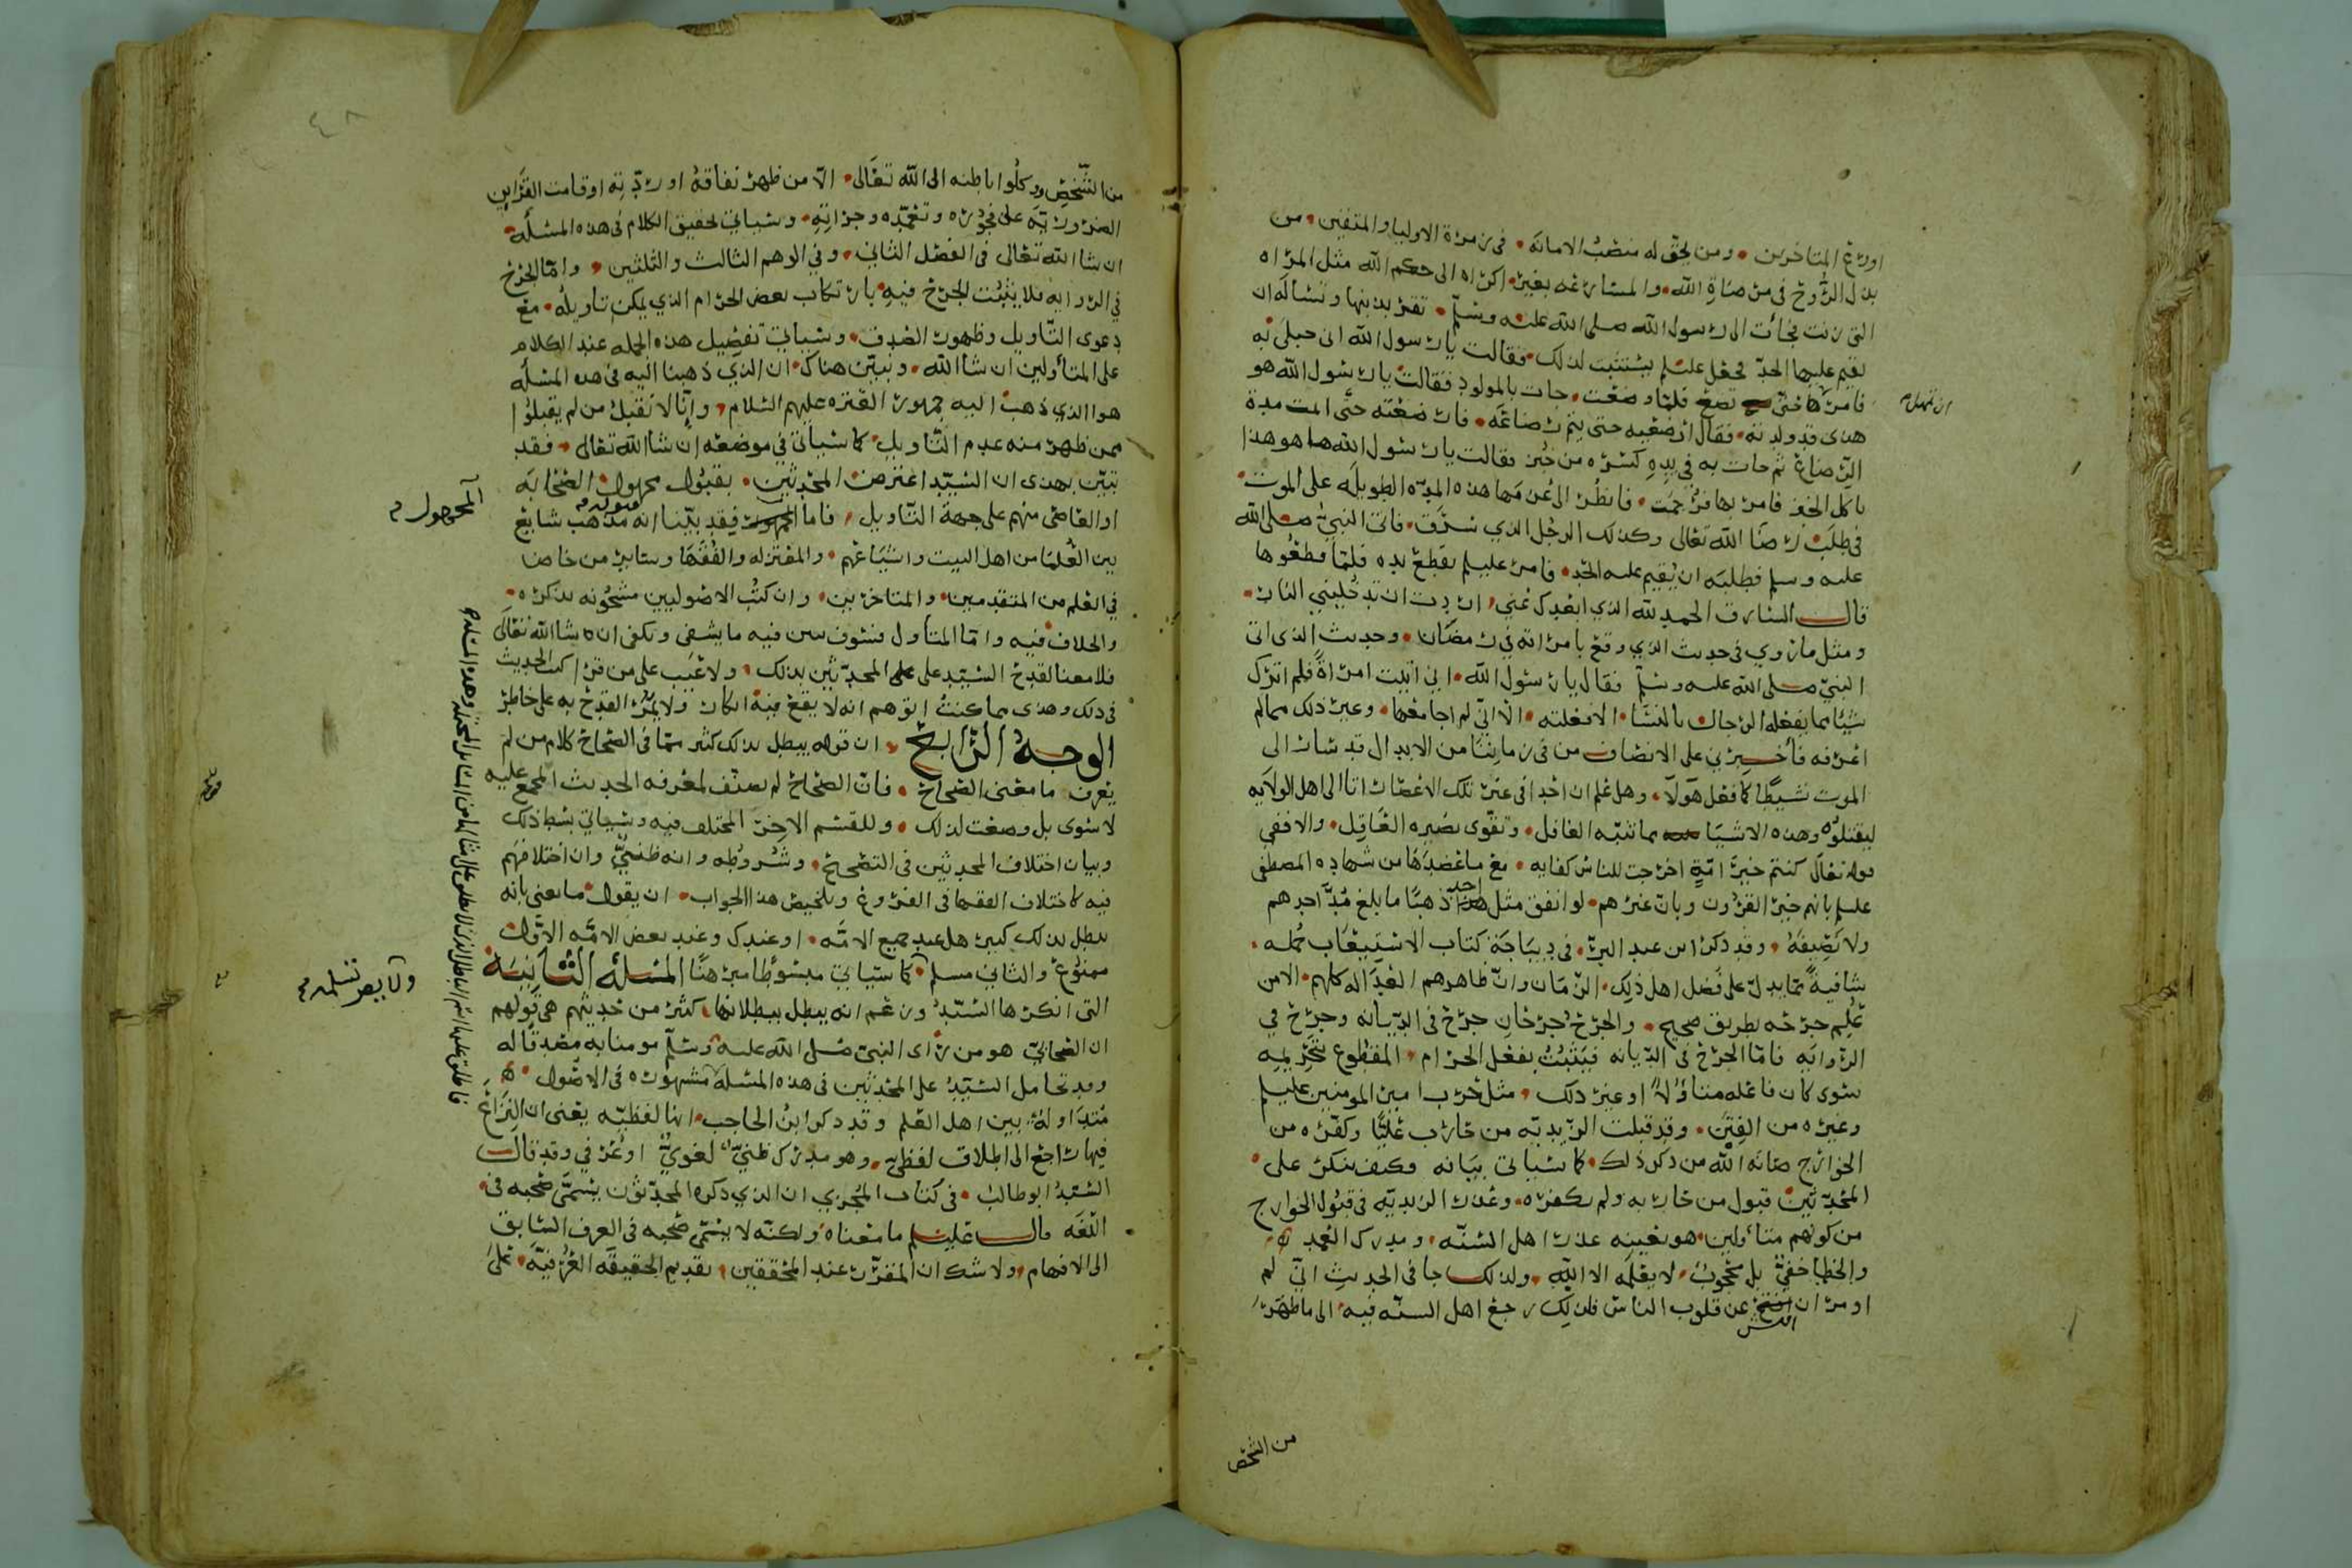 اورع المتاخرين ومن يحق له منصب الامانة في زمرة الاوليا والمتقين من
بذل الروح في مرضاة الله والمسارعة بغير اكراه الى حكم الله مثل المراه
التي زنت فجأت الى رسول الله صلى الله عليه وسلم تقر بذنبها وتساله ان
يقيم عليها الحد فجعل عليلم يستثبت لذلك فقالت يا رسول الله اني حبلى به
فامرها حتى تضع فلما وضعت جات بالمولود فقالت يا رسول الله هو
ان تمهل
هذى قد ولدته فقال ارضعيه حتى يتم رضاعه فارضعته حتى اتمت مدة
الرضاع ثم جات به في يده كسره من خبز فقالت يا رسول الله ها هو هذا
ياكل الخبز فامر بها فرجمت فانظر الى عزمها هذه المده الطويله على الموت
في طلب رضا الله تعالى وكذلك الرجل الذي سرق فاتى النبي صلى الله
عليه وسلم فطلبه ان يقيم عليه الحد فامر عليلم بقطع يده فلما قطعوها
قال السارق الحمد لله الذي ابعدك عني اردت ان تدخليني النار
ومثل ما روي في حديث الذي وقع بامراته في رمضان وحديث الذي اتى
النبي صلى الله عليه وسلم فقال يا رسول الله اني اتيت امراة فلم اترك
شيئا مما يفعله الرجال بالنسا الا فعلته الا اني لم اجامعها وغير ذلك مما لم
اعرفه فأخبرني على الانصاف من في زماننا من الابدال قد سار الى
الموت نشيطا كما فعل هولا وهل علم ان احدا في غير تلك الاعصار اتا الى اهل الولايه
ليقتلوه وهذه الاشيا مما تنبه الغافل وتقوي بصيره العاقل والا ففي
قوله تعالى كنتم خير امة اخرجت للناس كفايه مع ما عضدها من شهاده المصطفى
عليلم بانهم خير القرون وبان غيرهم لو انفق مثل احد ذهبا ما بلغ مد احدهم
ولا نصيفه وقد ذكر ابن عبد البر في ديباجة كتاب الاستيعاب جمله
شافية مما يدل على فضل اهل ذلك الزمان وان ظاهرهم العداله كلهم الا من
علم جرحه بطريق صحيح والجرح جرحان جرح في الديانه وجرح في
الروايه فاما الجرح في الديانه فيثبت بفعل الحرام المقطوع بتحريمه
سوى كان فاعله متاولا او غير ذلك مثل حرب امير المومنين عليلم
وغيره من الفتن وقد قبلت الزيديه من حارب عليا وكفره من
الخوارج صانه الله من ذكر ذلك كما سياتي بيانه وكيف ننكر على
المحدثين قبول من حاربه ولم يكفره وعذر الزيديه في قبول الخوارج
من كونهم متأولين هو بعينه عذر اهل السنه ومدرك العمد
والخطا خفي بل محجوب لا يعلمه الا الله ولذلك جا في الحديث اني لم
اومر ان افتش عن قلوب الناس فلذلك رجع اهل السنه فيه الى ما ظهر
من الشخص
٤٨
من الشخص ووكلوا باطنه الى الله تعالى الا من ظهر نفاقه او ردته او قامت القراين
الضروريه على فجوره وتعمده وجراته وسياتي تحقيق الكلام في هذه المسئله
ان شا الله تعالى في الفصل الثاني وفي الوهم الثالث والثلثين واما الجرح
في الروايه فلا يثبت الجرح فيه بارتكاب بعض الحرام الذي يمكن تاويله مع
دعوى التاويل وظهور الصدق وسياتي تفصيل هذه الجمله عند الكلام
على المتأولين ان شا الله ونبين هناك ان الذي ذهبنا اليه في هذه المسئله
هو الذي ذهب اليه جمهور العتره عليهم السلام وانا لا نقبل من لم يقبلوا
ممن ظهر منه عدم التاويل كما سياتي في موضعه ان شا الله تعالى فقد
تبين بهذى ان السيد اعترض المحدثين بقبول مجهول الصحابه
او العاصي منهم على جهة التاويل فاما قبول فقد بينا انه مذهب شايع
المجهول
بين العلما من اهل البيت واشياعهم والمعتزله والفقها وساير من خاض
في العلم من المتقدمين والمتاخرين وان كتب الاصوليين مشحونه بذكره
والخلاف فيه واما المتاول فسوف يبين فيه ما يشفي ويكفي ان شا الله تعالى
فلا معنا لقدح السيد على المحدثين بذلك ولا عيب على من قرا كتب الحديث
في ذلك وهذى مما كنت اتوهم انه لا يقع فيه انكار ولا يمر القدح به على خاطر
الوجه الرابع ان قوله يبطل بذلك كثير مما في الصحاح كلام من لم
يعرف ما معنى الصحاح فان الصحاح لم يصنف لمعرفه الحديث المجمع عليه
لا سوى بل وضعت لذلك وللقسم الاخر المختلف فيه وسياتي بسط ذلك
وبيان اختلاف المحدثين في التصحيح وشروطه وانه ظني وان اختلافهم
فيه كاختلاف الفقها في الفروع وتلخيص هذا الجواب ان يقول ما يعني بانه
يبطل بذلك كثير هل عند جميع الامه او عندك وعند بعض الامه الاول
ممنوع والثاني مسلم كما سياتي مبسوطا مبرهنا المسئله الثانية
ولا يضر تسليمه
التي انكرها السيد وزعم انه يبطل ببطلانها كثير من حديثهم هي قولهم
ان الصحابي هو من راى النبي صلى الله عليه وسلم مومنا به مصدقا له
وقد تحامل السيد على المحدثين في هذه المسئله مشهوره في الاصول
متداوله بين اهل العلم وقد ذكر ابن الحاجب انها لفظيه يعني ان النزاع
فيها راجع الى اطلاق لفظي وهو مدرك ظني لغوي او عرفي وقد قال
السيد ابو طالب في كتاب المجزي ان الذي ذكره المحدثون يسمى صحبه في
اللغه قال عليلم ما معناه ولكنه لا يسمى صحبه في العرف السابق
الى الافهام ولا شك ان المقرر عند المحققين تقديم الحقيقه العرفيه على